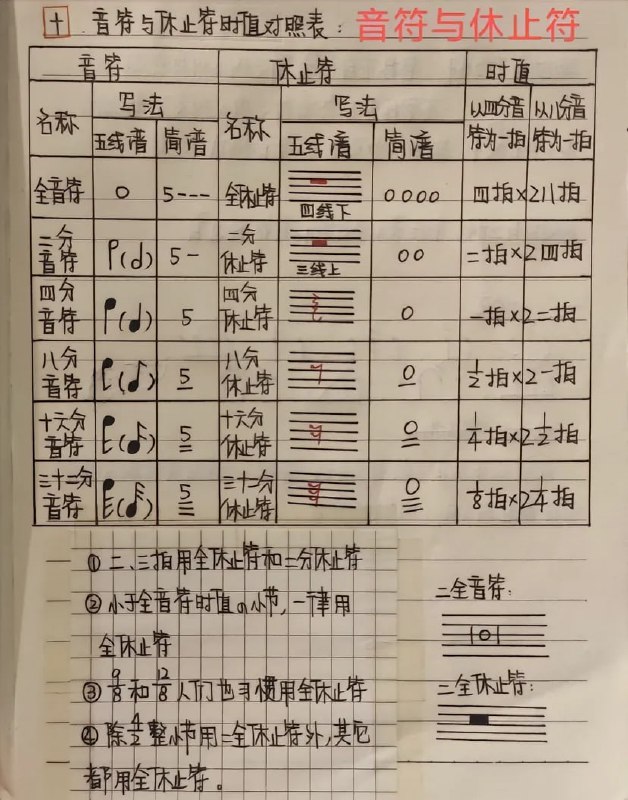 十 音符与休止符时值对照表: 音符与休止符
音符 休止符 时值
名称 写法 名称 写法 以四分音符为一拍 以八分音符为一拍
五线谱 简谱 五线谱 简谱
全音符 5--- 全休止符 四线下 0000 四拍×2八拍
二分音符 5- 二分休止符 三线上 00 二拍×2四拍
四分音符 5 四分休止符 0 一拍×2二拍
八分音符 5 八分休止符 0 1/2拍×2一拍
十六分音符 5 十六分休止符 0 1/4拍×2 1/2拍
三十二分音符 5 三十二分休止符 0 1/8拍×2 1/4拍
① 二、三拍用全休止符和二分休止符
② 小于全音符时值的小节,一律用
全休止符
③ 9/8和12/8人们也习惯用全休止符
④ 除4/2整小节用二全休止符外,其它
都用全休止符。
二全音符:
二全休止符: